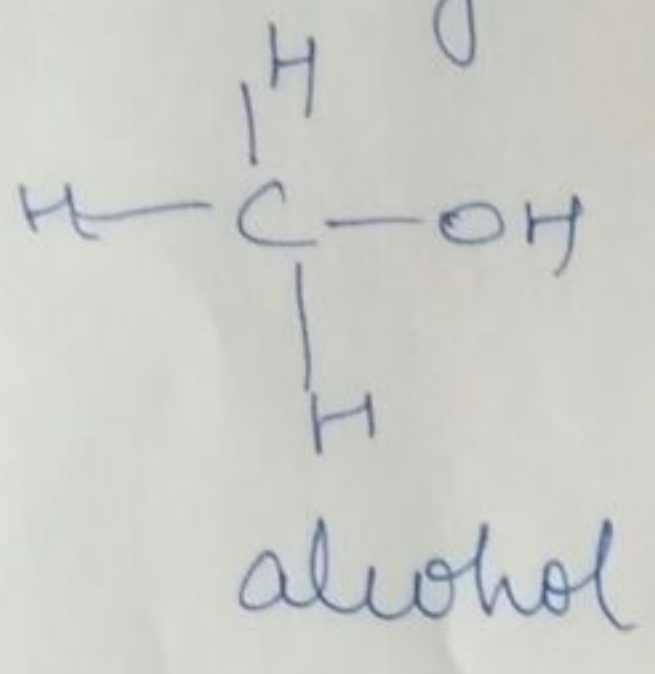 H
H — C — OH
H
alcohol